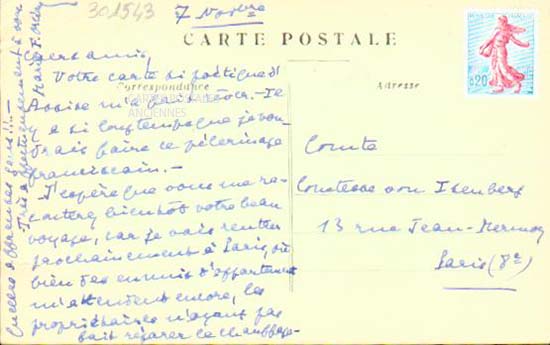 301543
7 Novbre
CARTE POSTALE
Correspondance
Adresse
CARTES POSTALES
ANCIENNES
0,20
Chers amis,
Votre carte si poétique d'
Assise m'a fait rêver. - Il
y a si longtemps que je vou-
drais faire ce pèlerinage
franciscain. -
J'espère que vous me ra-
conterez bientôt votre beau
voyage, car je vais rentrer
prochainement à Paris, où
bien des ennuis d'appartement
m'attendent encore, les
propriétaires n'ayant pas
fait réparer le chauffage -
Très affectueusement à vous
Marie
Comte
Comtesse von Isenberg
13 rue Jean-Mermoz
Paris (8e)